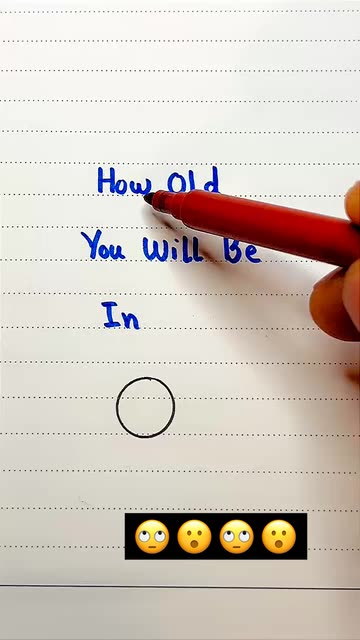 How Old
You Will Be
In
🙄😮🙄😮